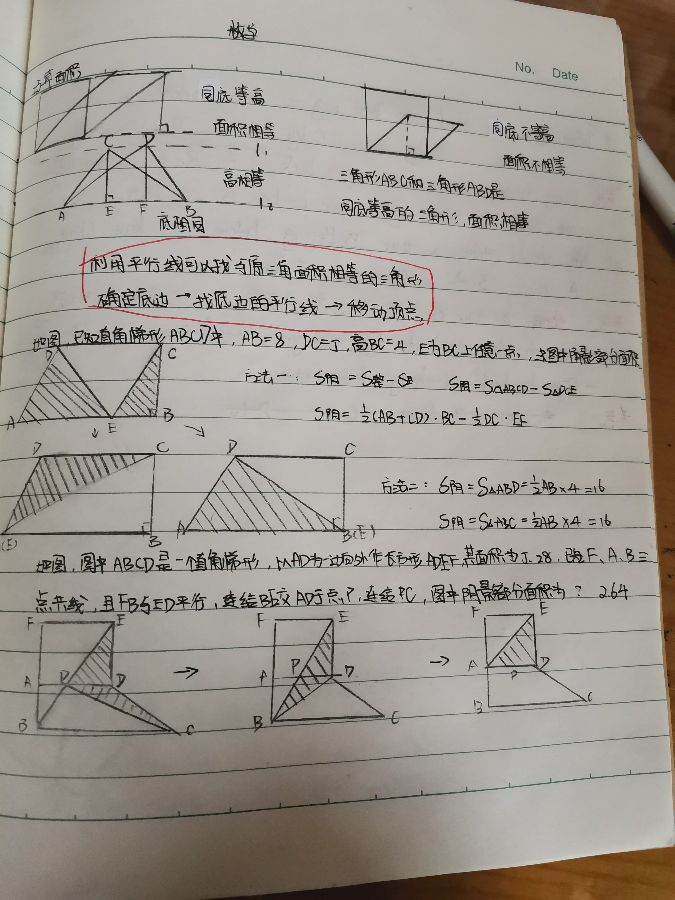 数学
No. Date
计算面积
同底等高
面积相等
l₁
高相等
l₂
C D
A E F B
底相同
同底不等高
面积不相等
三角形ABC和三角形ABD是
同底等高的三角形,面积相等
利用平行线可以找与原三角面积相等的三角形
确定底边→找底边的平行线→移动顶点
如图,已知直角梯形ABCD中,AB=8,DC=5,高BC=4,E为BC上任意一点,求图中阴影部分面积
D C
A E B
方法一: S阴=S整-S空 S阴=S△ABCD-S△DCE
S阴=½(AB+CD)·BC-½DC·EC
D C
(E) B
D C
A B(E)
方法二: S阴=S△ABD=½AB×4=16
S阴=S△ABC=½AB×4=16
如图,图中ABCD是一个直角梯形,以AD为一边向外作长方形ADEF,其面积为5.28,已知F、A、B三
点共线,且FB与ED平行,连结BE交AD于点P,连结PC,图中阴影部分面积为? 264
F E
A P D
B C
→
F E
A P D
B C
→
F E
A P D
B C